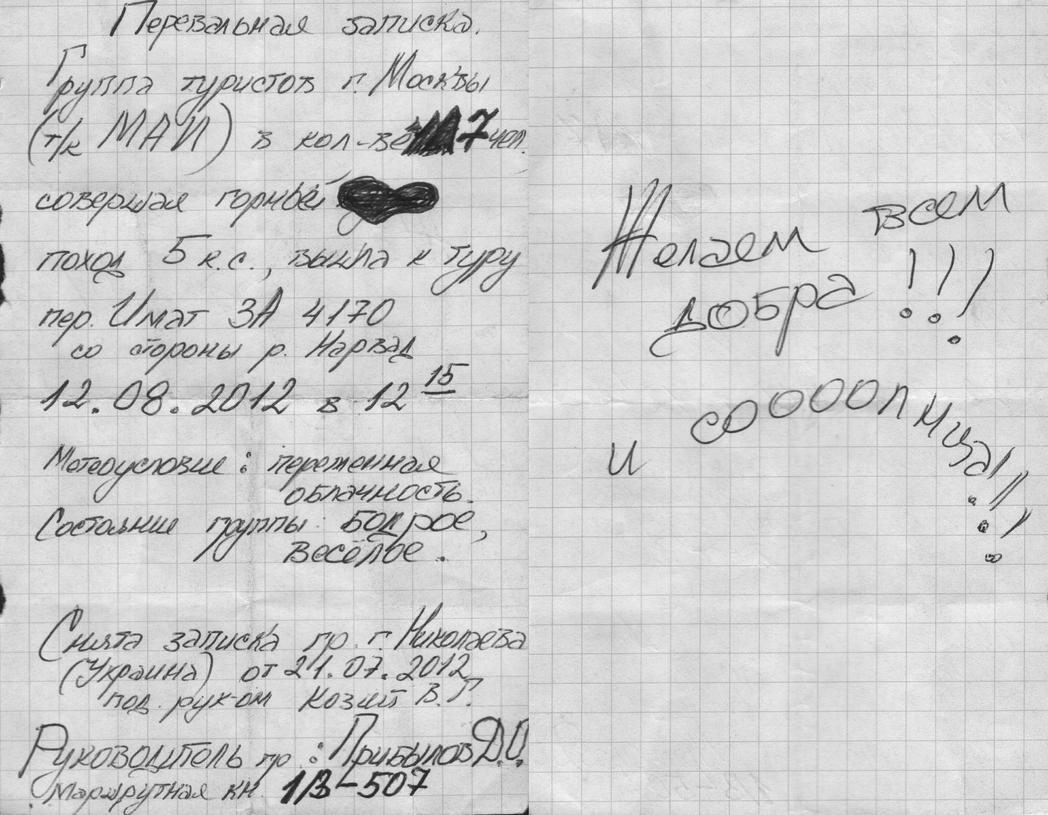 Перевальная записка.
Группа туристов г. Москвы
(т/к МАИ) в кол-ве 7 чел.
совершая горный
поход 5 к.с., вышла к туру
пер. Имат 3А 4170
со стороны р. Нарвад
12.08.2012 в 12 15
Метеоусловие: переменная
облачность.
Состояние группы: бодрое,
весёлое.
Снята записка гр. г. Николаева
(Украина) от 21.07.2012
под рук-ом Козий В.Г.
Руководитель гр.: Прибылов Д.О.
Маршрутная кн 1/3-507
Желаем всем
добра!!!
и сооооолнца!!!